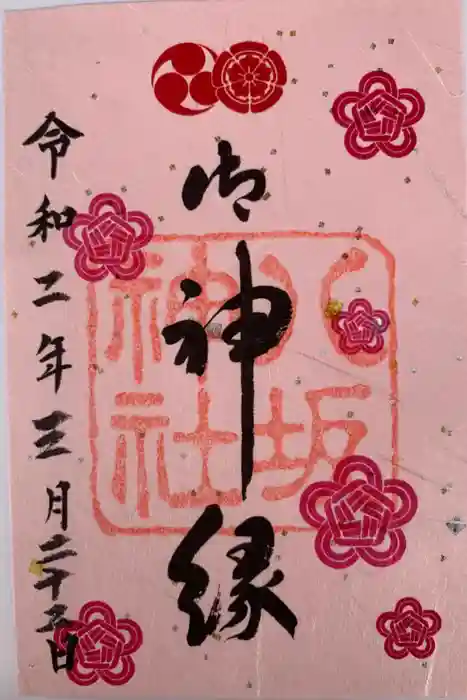 御神縁
八坂神社
令和二年三月二十五日